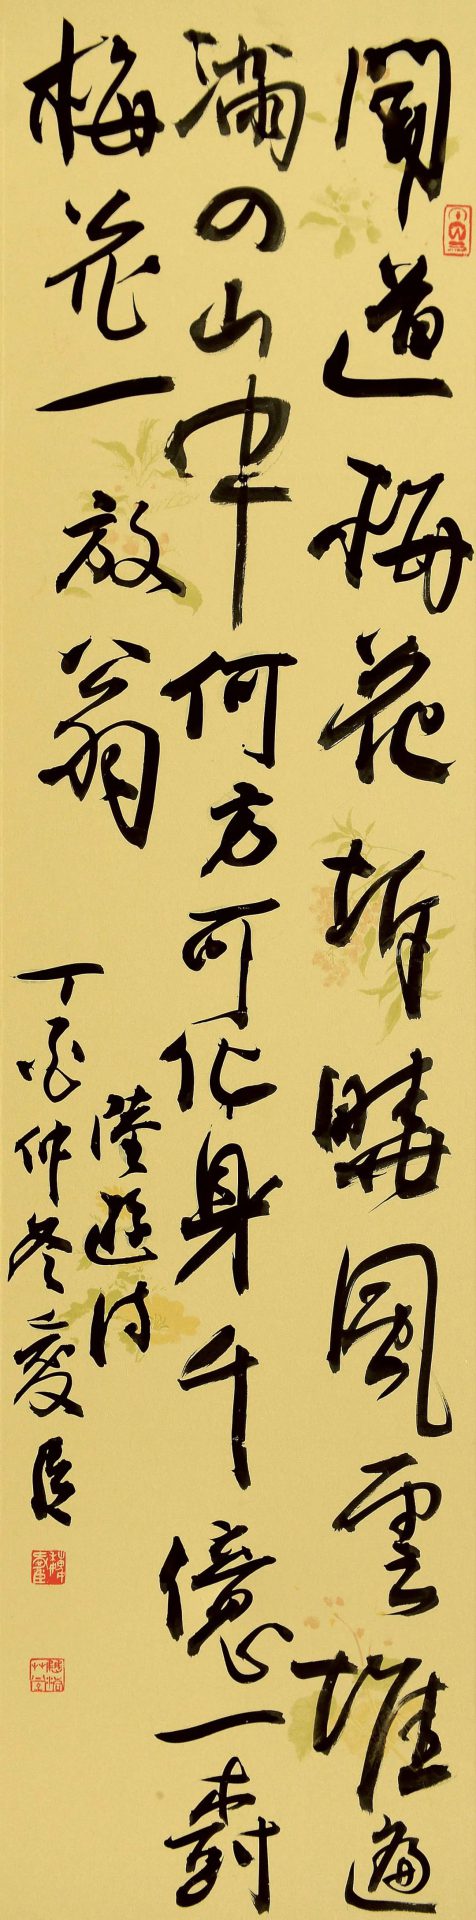 聞道梅花坼曉風雪堆遍
滿四山中何方可化身千億一樹
梅花一放翁
陸遊詩
丁酉仲冬